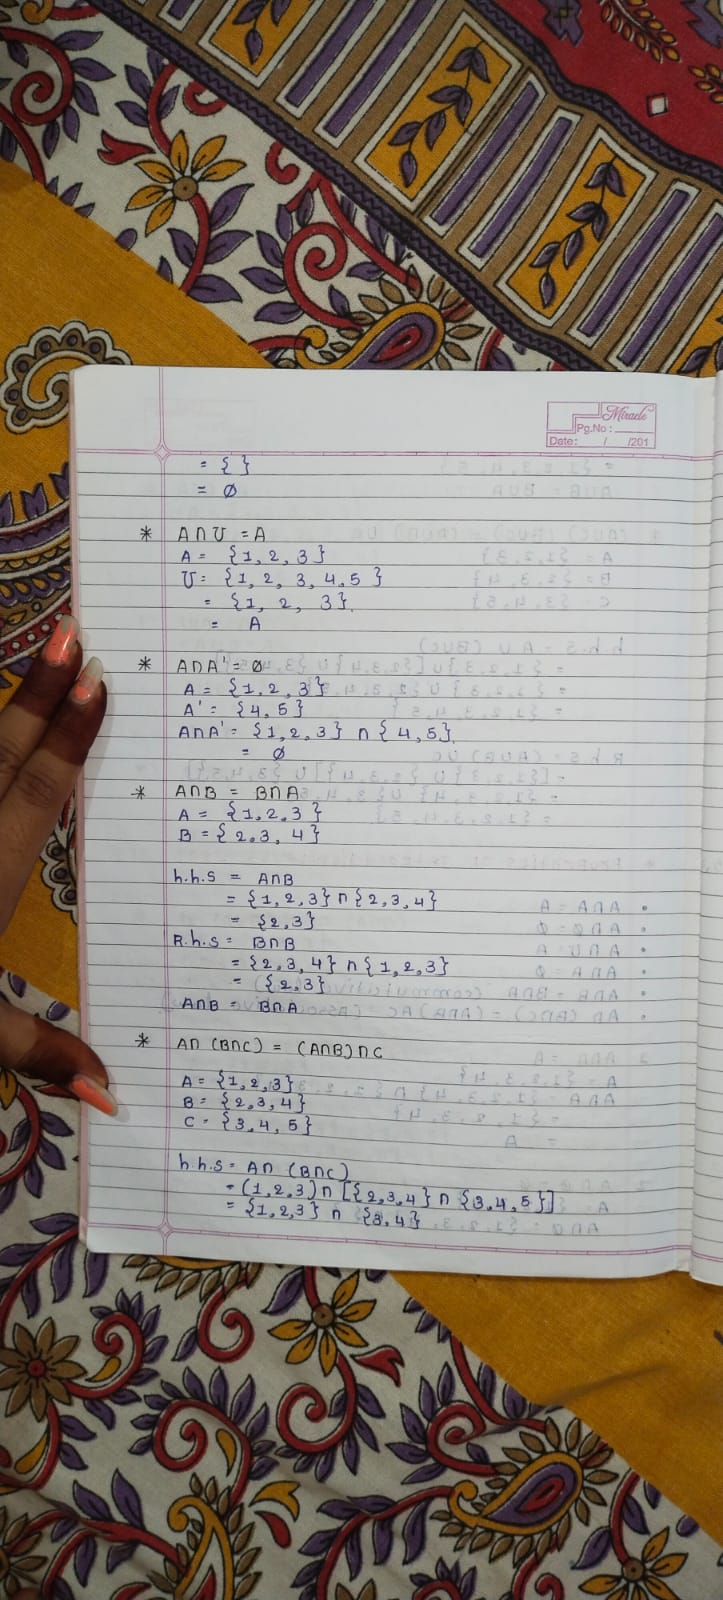 Miracle
Pg.No :
Date: / /201
= { }
= ∅
* A∩U = A
A = {1, 2, 3}
U = {1, 2, 3, 4, 5 }
= {1, 2, 3}
= A
* A∩A' = ∅
A = {1, 2, 3}
A' = {4, 5}
A∩A' = {1, 2, 3} ∩ { 4, 5}
= ∅
* A∩B = B∩A
A = {1, 2, 3}
B = { 2, 3, 4}
h.h.s = A∩B
= {1, 2, 3} ∩ {2, 3, 4}
= {2, 3}
R.h.s = B∩B
= {2, 3, 4} ∩ {1, 2, 3}
= {2, 3}
A∩B = B∩A
* A∩ (B∩C) = (A∩B)∩C
A = {1, 2, 3}
B = {2, 3, 4}
C = {3, 4, 5}
h.h.s = A∩ (B∩C)
= (1, 2, 3) ∩ [{2, 3, 4} ∩ {3, 4, 5}]
= {1, 2, 3} ∩ {3, 4}